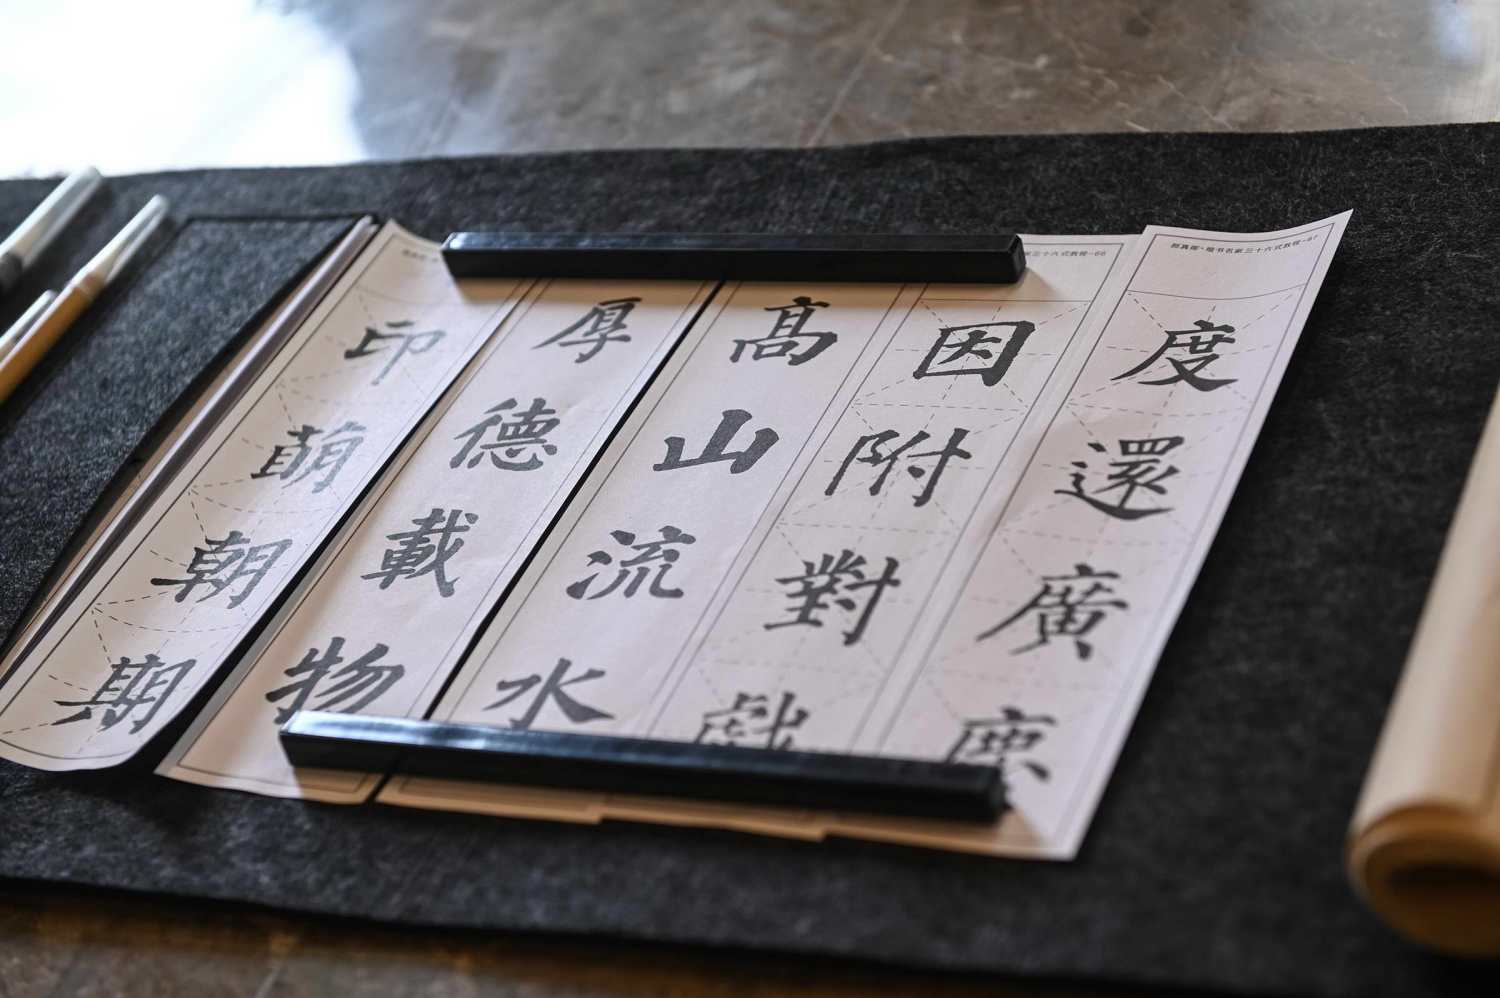 颜真卿·楷书名家三十六式教程-67
度還廣
家三十六式教程-66
因附對戲
高山流水
厚德載物
印萌朝期